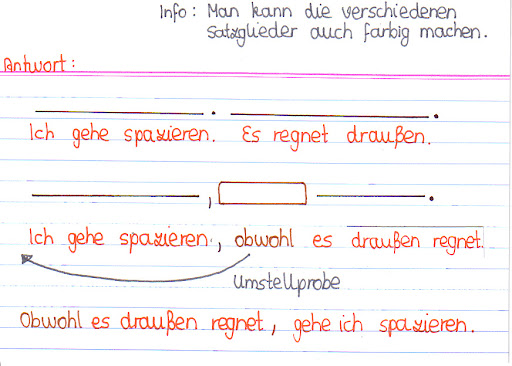 Info: Man kann die verschiedenen
Satzglieder auch farbig machen.
Antwort:
Ich gehe spazieren. Es regnet draußen.
Ich gehe spazieren, obwohl es draußen regnet.
Umstellprobe
Obwohl es draußen regnet, gehe ich spazieren.